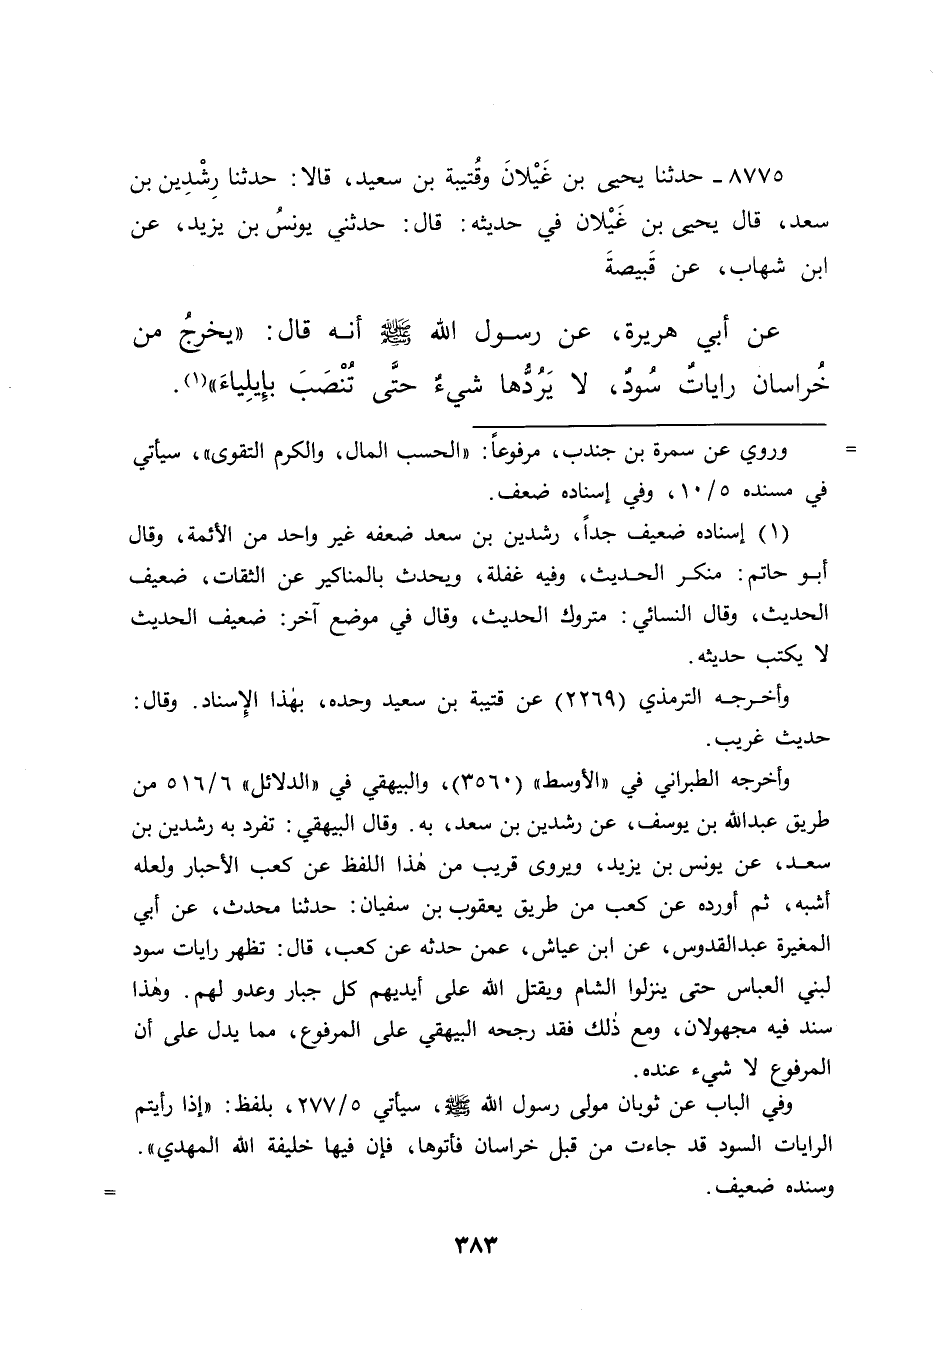 ٨٧٧٥ ـ حدثنا يحيى بن غَيْلانَ وقُتيبة بن سعيد، قالا: حدثنا رِشْدِين بن
سعد، قال يحيى بن غَيْلان في حديثه: قال: حدثني يونسُ بن يزيد، عن
ابن شهاب، عن قَبيصةَ
عن أبي هريرة، عن رسول الله ﷺ أنه قال: «يخرجُ من
خُراسان راياتٌ سُودٌ، لا يَرُدُّها شيءٌ حتَّى تُنْصَبَ بإيلِياءَ»(١).
= وروي عن سمرة بن جندب، مرفوعاً: «الحسب المال، والكرم التقوى»، سيأتي
في مسنده ١٠/٥، وفي إسناده ضعف.
(١) إسناده ضعيف جداً، رشدين بن سعد ضعفه غير واحد من الأئمة، وقال
أبو حاتم: منكر الحديث، وفيه غفلة، ويحدث بالمناكير عن الثقات، ضعيف
الحديث، وقال النسائي: متروك الحديث، وقال في موضع آخر: ضعيف الحديث
لا يكتب حديثه.
وأخرجه الترمذي (٢٢٦٩) عن قتيبة بن سعيد وحده، بهٰذا الإسناد. وقال:
حديث غريب.
وأخرجه الطبراني في «الأوسط» (٣٥٦٠)، والبيهقي في «الدلائل» ٥١٦/٦ من
طريق عبدالله بن يوسف، عن رشدين بن سعد، به. وقال البيهقي: تفرد به رشدين بن
سعد، عن يونس بن يزيد، ويروى قريب من هٰذا اللفظ عن كعب الأحبار ولعله
أشبه، ثم أورده عن كعب من طريق يعقوب بن سفيان: حدثنا محدث، عن أبي
المغيرة عبدالقدوس، عن ابن عياش، عمن حدثه عن كعب، قال: تظهر رايات سود
لبني العباس حتى ينزلوا الشام ويقتل الله على أيديهم كل جبار وعدو لهم. وهٰذا
سند فيه مجهولان، ومع ذٰلك فقد رجحه البيهقي على المرفوع، مما يدل على أن
المرفوع لا شيء عنده.
وفي الباب عن ثوبان مولى رسول الله ﷺ، سيأتي ٢٧٧/٥، بلفظ: «إذا رأيتم
الرايات السود قد جاءت من قبل خراسان فأتوها، فإن فيها خليفة الله المهدي».
وسنده ضعيف. =
٣٨٣